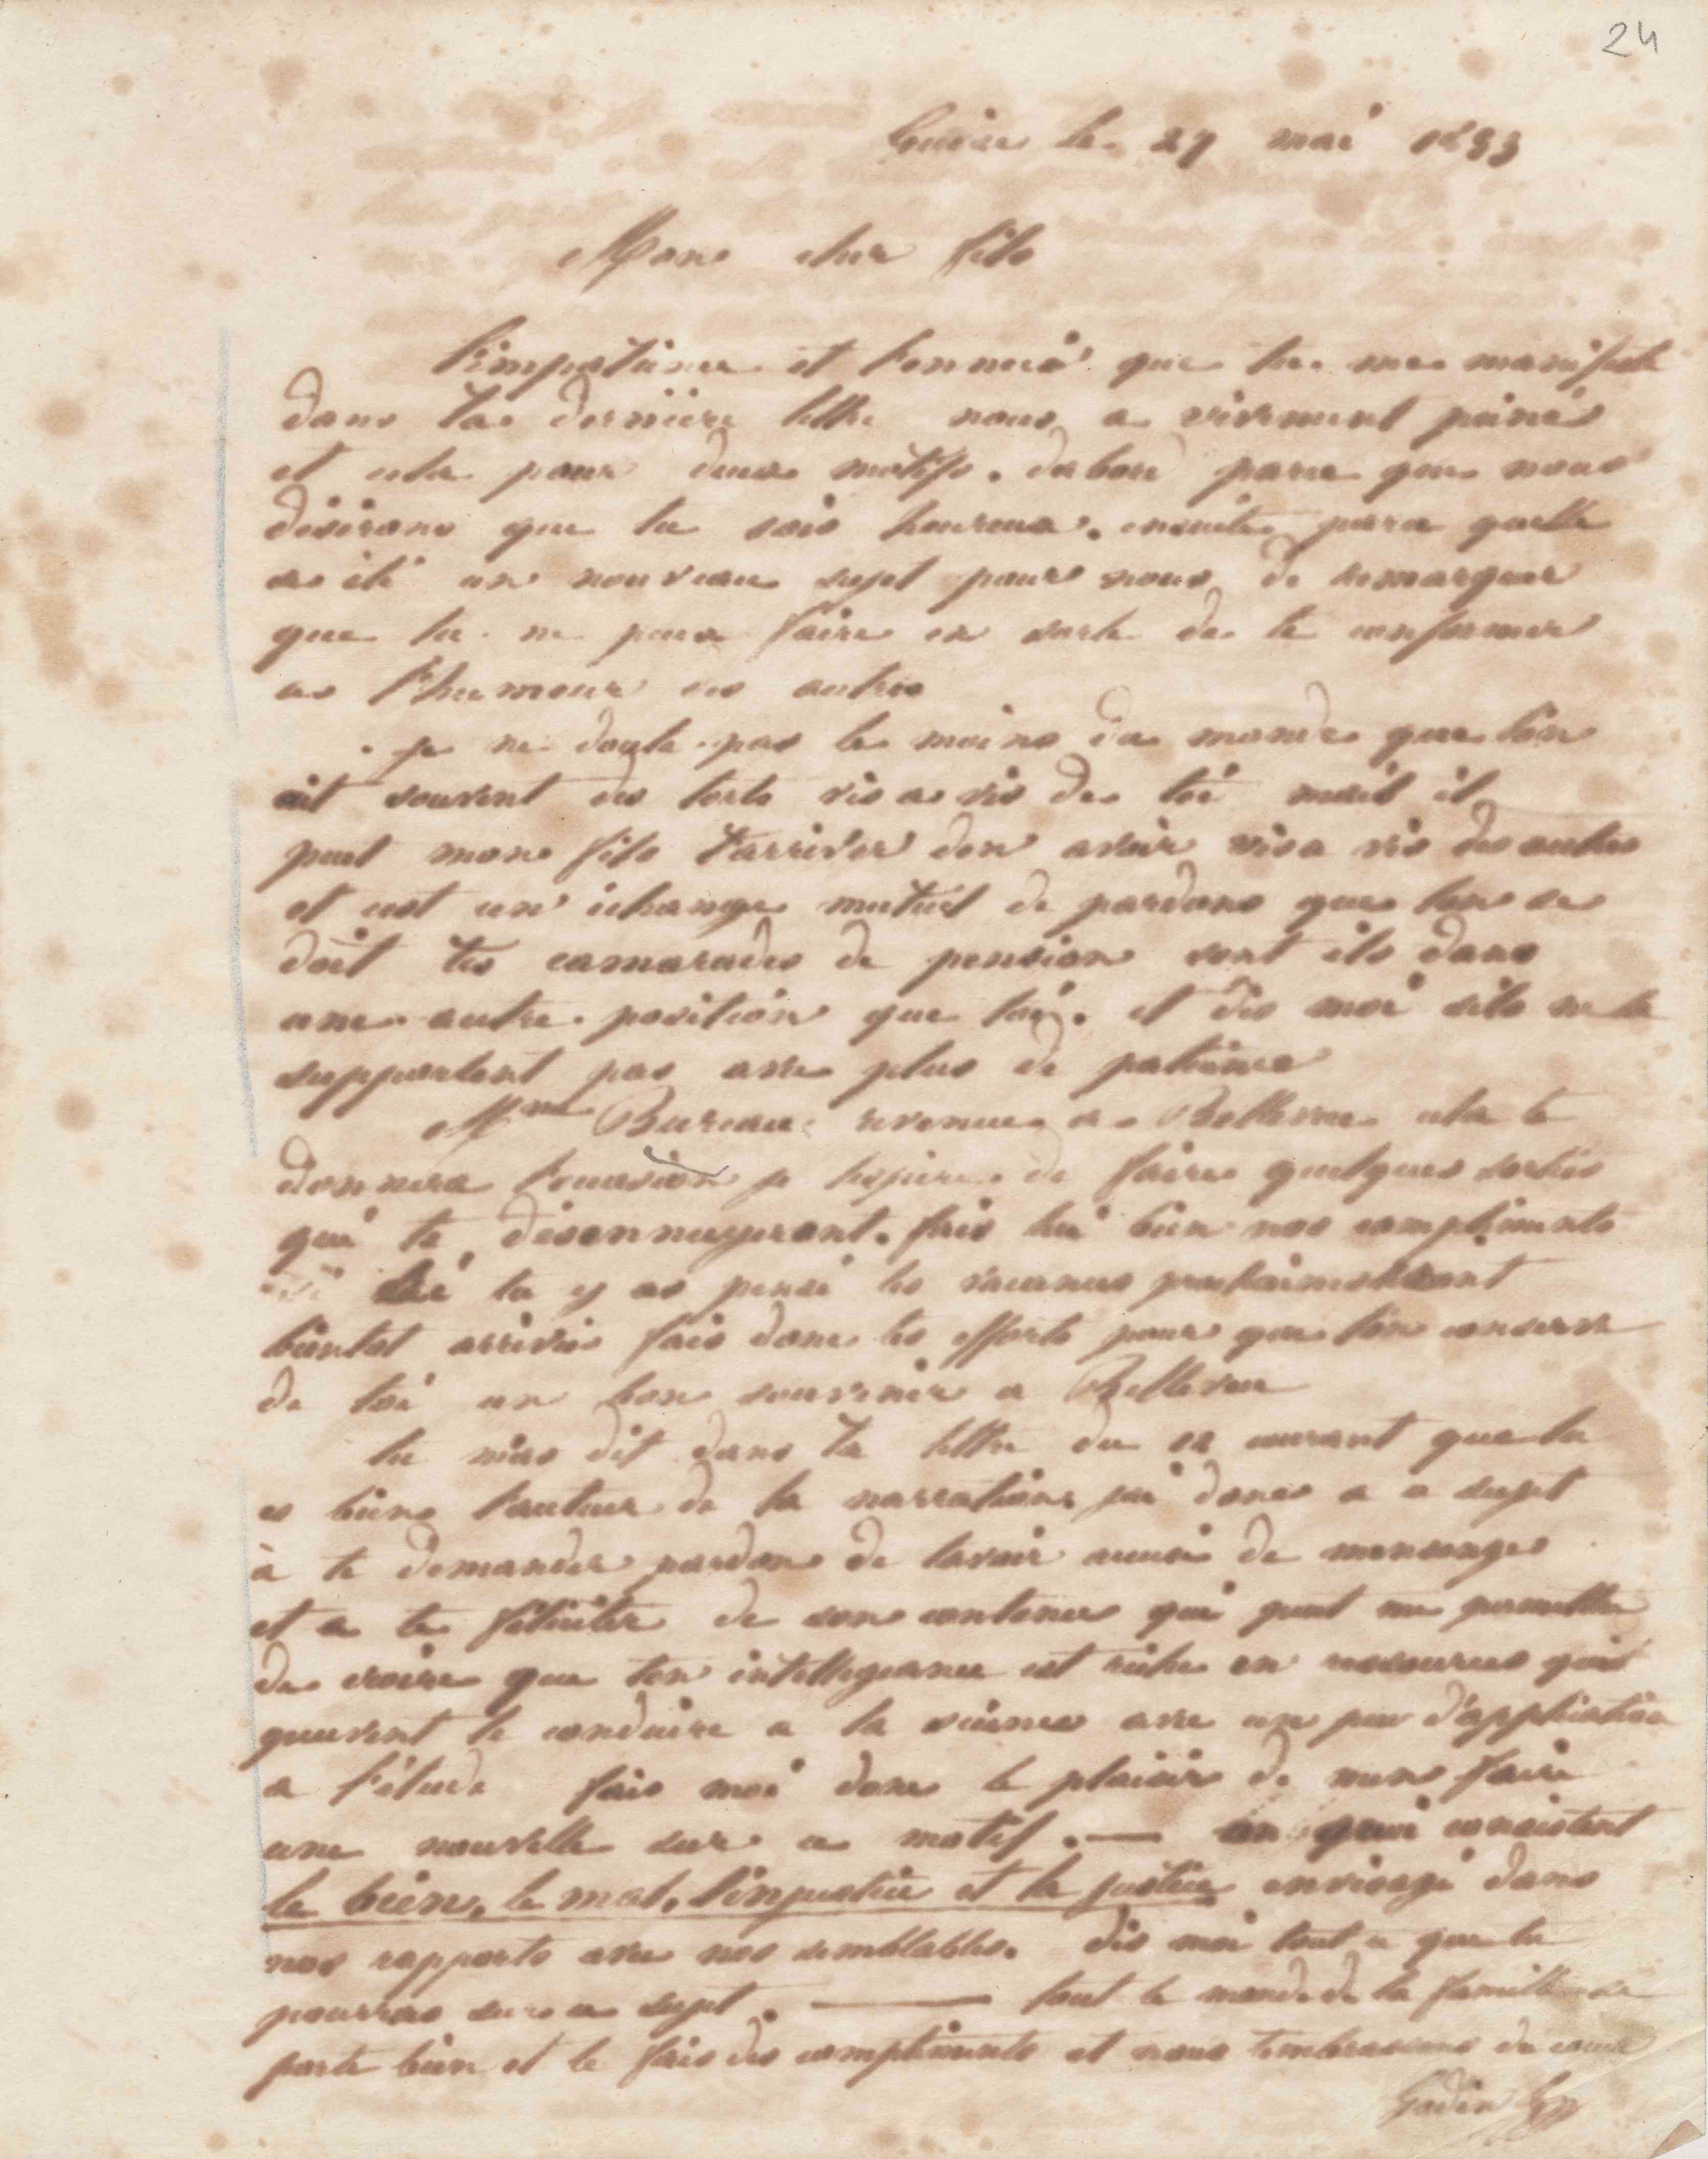 24
Guise le 27 mai 1853
Mon cher fils
l'impatience et l'ennui que tu me manifeste
dans ta dernière lettre nous a vivement peinés
et cela pour deux motifs. dabord parce que nous
désirons que tu sois heureux. ensuite parce quelle
a été un nouveau sujet pour nous de remarquer
que tu ne peux faire en sorte de te conformer
a l'humeur des autres
je ne doute pas le moins du monde que lon
ait souvent des torts vis a vis de toi mais il
peut mon fils t'arriver den avoir vis a vis des autres
et cest un échange mutuel de pardons que lon se
doit tes camarades de pension sont ils dans
une autre position que toi. et dis moi sils ne la
supportent pas avec plus de patience
Mme Bureau revenue a Bellevue cela te
donnera l'occasion je lespère de faire quelques sorties
qui te désennuyeront. fais lui bien nos compliments
si tu y as pensé les vacances prochaines seront
bientot arrivées fais donc tes efforts pour que lon conserve
de toi un bon souvenir a Bellevue
tu m'as dit dans ta lettre du 12 courant que tu
es bien lauteur de la narration jai donc a ce sujet
à te demander pardon de tavoir accusé de mensonge
et a te féliciter de son contenu qui peut me permettre
de croire que ton intelligeance est riche en ressources qui
peuvent te conduire a la science avec un peu d'application
a l'étude fais moi donc le plaisir de men faire
une nouvelle sur ce motif. — en quoi consistent
le bien, le mal, linjustice et la justice envisagé dans
nos rapports avec nos semblables. dis moi tout ce que tu
pourras sur ce sujet. — tout le monde de la famille se
porte bien et te fais des compliments et nous tembrassons de coeur
Godin